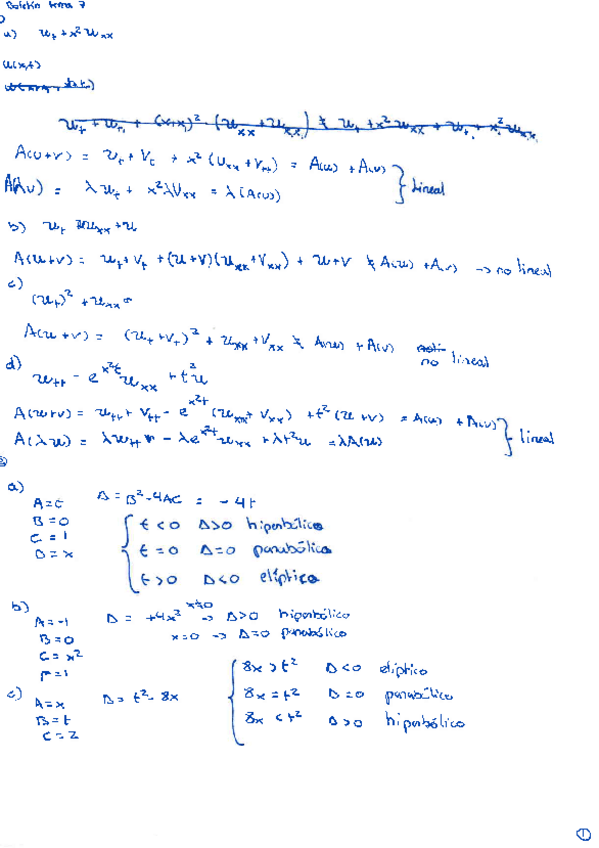 Boletín tema 7
a) u_t + x² u_xx
u(x,t)
u_t + u_t, + (x+x₁)² · (u_xx + u_xx) ≠ u_t + x² u_xx + u_t, + x₁² u_xx
A(u+v) = u_t + v_t + x² (u_xx + v_tt) = A(u) + A(v)
A(λu) = λ u_t + x² λ v_xx = λ(A(u))
} lineal
b) u_t uu_xx + u
A(u+v) = u_t + v_t + (u+v)(u_xx + v_xx) + u+v ≠ A(u) + A(v) → no lineal
c)
(u_t)² + u_xx
A(u+v) = (u_t + v_t)² + u_xx + v_xx ≠ A(u) + A(v) no lineal
d)
u_tt - e^{x²t} u_xx + t² u
A(u+v) = u_tt + v_tt - e^{x²t} (u_xx + v_xx) + t² (u+v) = A(u) + A(v)
A(λu) = λu_tt - λe^{x²t} u_xx + λt²u = λA(u)
} lineal
a)
A=t Δ = B²-4AC = -4t
B=0 { t<0 Δ>0 hiperbólico
C=1 t=0 Δ=0 parabólico
D=x t>0 Δ<0 elíptico
b)
A=-1 Δ = +4x² x≠0 → Δ>0 hiperbólico
B=0 x=0 → Δ=0 parabólico
C=x²
F=1
c)
A=x Δ= t²-8x { 8x > t² Δ<0 elíptico
B=t 8x = t² Δ=0 parabólico
C=2 8x < t² Δ>0 hiperbólico
1